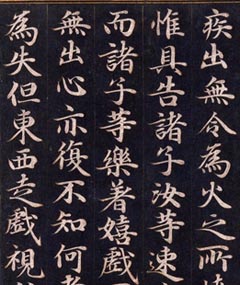 疾出無令為火之所燒
惟具告諸子汝等速
而諸子等樂著嬉戲
無出心亦復不知何者
為失但東西走戲視